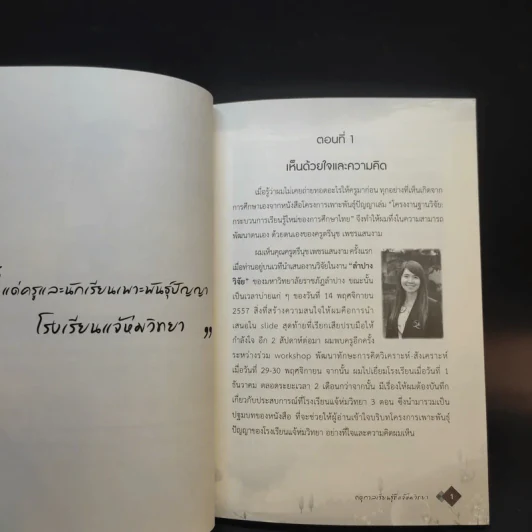 แด่ครูและนักเรียนเพาะพันธุ์ปัญญา
โรงเรียนแจ้ห่มวิทยา ”
ตอนที่ 1
เห็นด้วยใจและความคิด
เมื่อรู้ว่าผมไม่เคยถ่ายทอดอะไรให้ครูมาก่อน ทุกอย่างที่เห็นเกิดจาก
การศึกษาเองจากหนังสือโครงการเพาะพันธุ์ปัญญาเล่ม “โครงงานฐานวิจัย:
กระบวนการเรียนรู้ใหม่ของการศึกษาไทย” จึงทำให้ผมทึ่งในความสามารถ
พัฒนาตนเอง ด้วยตนเองของครูตรีนุช เพชรแสนงาม
ผมเห็นคุณครูตรีนุช เพชรแสนงาม ครั้งแรก
เมื่อท่านอยู่บนเวทีนำเสนองานวิจัยในงาน “ลำปาง
วิจัย” ของมหาวิทยาลัยราชภัฏลำปาง ขณะนั้น
เป็นเวลาบ่ายแก่ ๆ ของวันที่ 14 พฤศจิกายน
2557 สิ่งที่สร้างความสนใจให้ผมคือการนำ
เสนอใน slide สุดท้ายที่เรียกเสียงปรบมือให้
กำลังใจ อีก 2 สัปดาห์ต่อมา ผมพบครูอีกครั้ง
ระหว่างร่วม workshop พัฒนาทักษะการคิดวิเคราะห์-สังเคราะห์
เมื่อวันที่ 29-30 พฤศจิกายน จากนั้น ผมไปเยี่ยมโรงเรียนเมื่อวันที่ 1
ธันวาคม ตลอดระยะเวลา 2 เดือนกว่าจากนั้น มีเรื่องให้ผมต้องบันทึก
เกี่ยวกับประสบการณ์ที่โรงเรียนแจ้ห่มวิทยา 3 ตอน ซึ่งนำมารวมเป็น
ปฐมบทของหนังสือ ที่จะช่วยให้ผู้อ่านเข้าใจบริบทโครงการเพาะพันธุ์
ปัญญาของโรงเรียนแจ้ห่มวิทยา อย่างที่ใจและความคิดผมเห็น
1